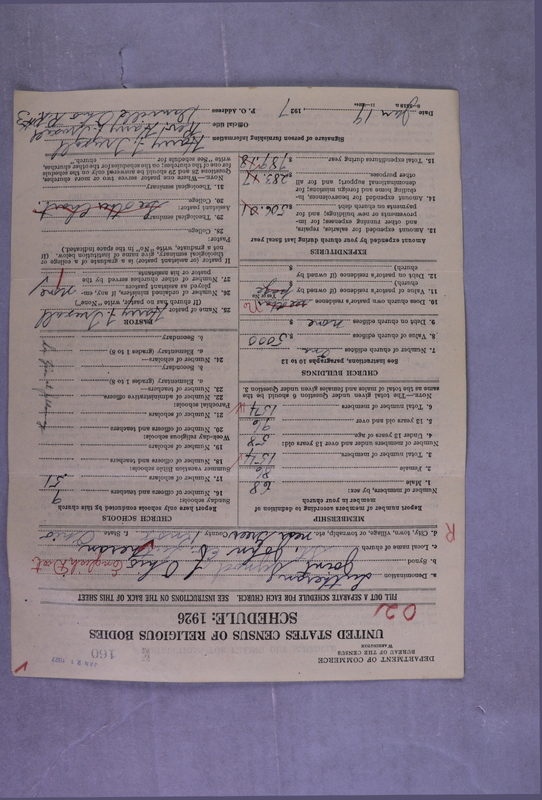 DEPARTMENT OF COMMERCE
BUREAU OF THE CENSUS
WASHINGTON
160
JAN 21 1927
UNITED STATES CENSUS OF RELIGIOUS BODIES
SCHEDULE: 1926
FILL OUT A SEPARATE SCHEDULE FOR EACH CHURCH. SEE INSTRUCTIONS ON THE BACK OF THIS SHEET
a. Denomination Lutheran
b. Synod Joint Synod of Ohio English Dist
c. Local name of church St. John Ev. Lutheran
d. City, town, village, or township, etc. near Greer County Knox State Ohio
MEMBERSHIP
Report number of members according to definition of member in your church
Number of members, by sex:
1. Male 68
2. Female 86
3. Total number of members 154
Number of members under and over 13 years old:
4. Under 13 years of age 58
5. 13 years old and over 96
6. Total number of members 154
NOTE.—The total given under Question 6 should be the same as the total of males and females given under Question 3.
CHURCH BUILDINGS
See instructions, paragraphs 10 to 12
7. Number of church edifices One
8. Value of church edifices $ 5000
9. Debt on church edifices $ none
10. Does church own pastor's residence No
Yes or No
11. Value of pastor's residence (if owned by church) $
12. Debt on pastor's residence (if owned by church) $
EXPENDITURES
Amount expended by your church during last fiscal year
13. Amount expended for salaries, repairs, and other running expenses; for improvements or new buildings; and for payments on church debt $ 506.21
14. Amount expended for benevolences, including home and foreign missions; for denominational support; and for all other purposes $ 283.47
15. Total expenditures during year
CHURCH SCHOOLS
Report here only schools conducted by this church
Sunday schools:
16. Number of officers and teachers 9
17. Number of scholars 51
Summer vacation Bible schools:
18. Number of officers and teachers
19. Number of scholars
Week-day religious schools:
20. Number of officers and teachers
21. Number of scholars
Parochial schools:
22. Number of administrative officers
23. Number of teachers—
a. Elementary (grades 1 to 8)
b. Secondary
24. Number of scholars—
a. Elementary (grades 1 to 8)
b. Secondary
PASTOR
25. Name of pastor
(If church has no pastor write "None")
26. Number of assistant ministers, if any, employed as assistant pastors none
27. Number of other churches served by the pastor or his assistants
If pastor (or assistant pastor) is a graduate of a college or theological seminary, give name of institution below. (If not a graduate, write "No" in the space indicated.)
Pastor:
28. College
29. Theological seminary
Assistant pastor:
30. College
31. Theological seminary
Signature of person furnishing information
Official title
P. O. Address Danville Ohio
Date Jan 19, 1927